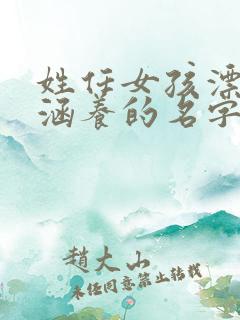 姓任女孩漂
涵养的名字
趙大山
未经同意禁止转载